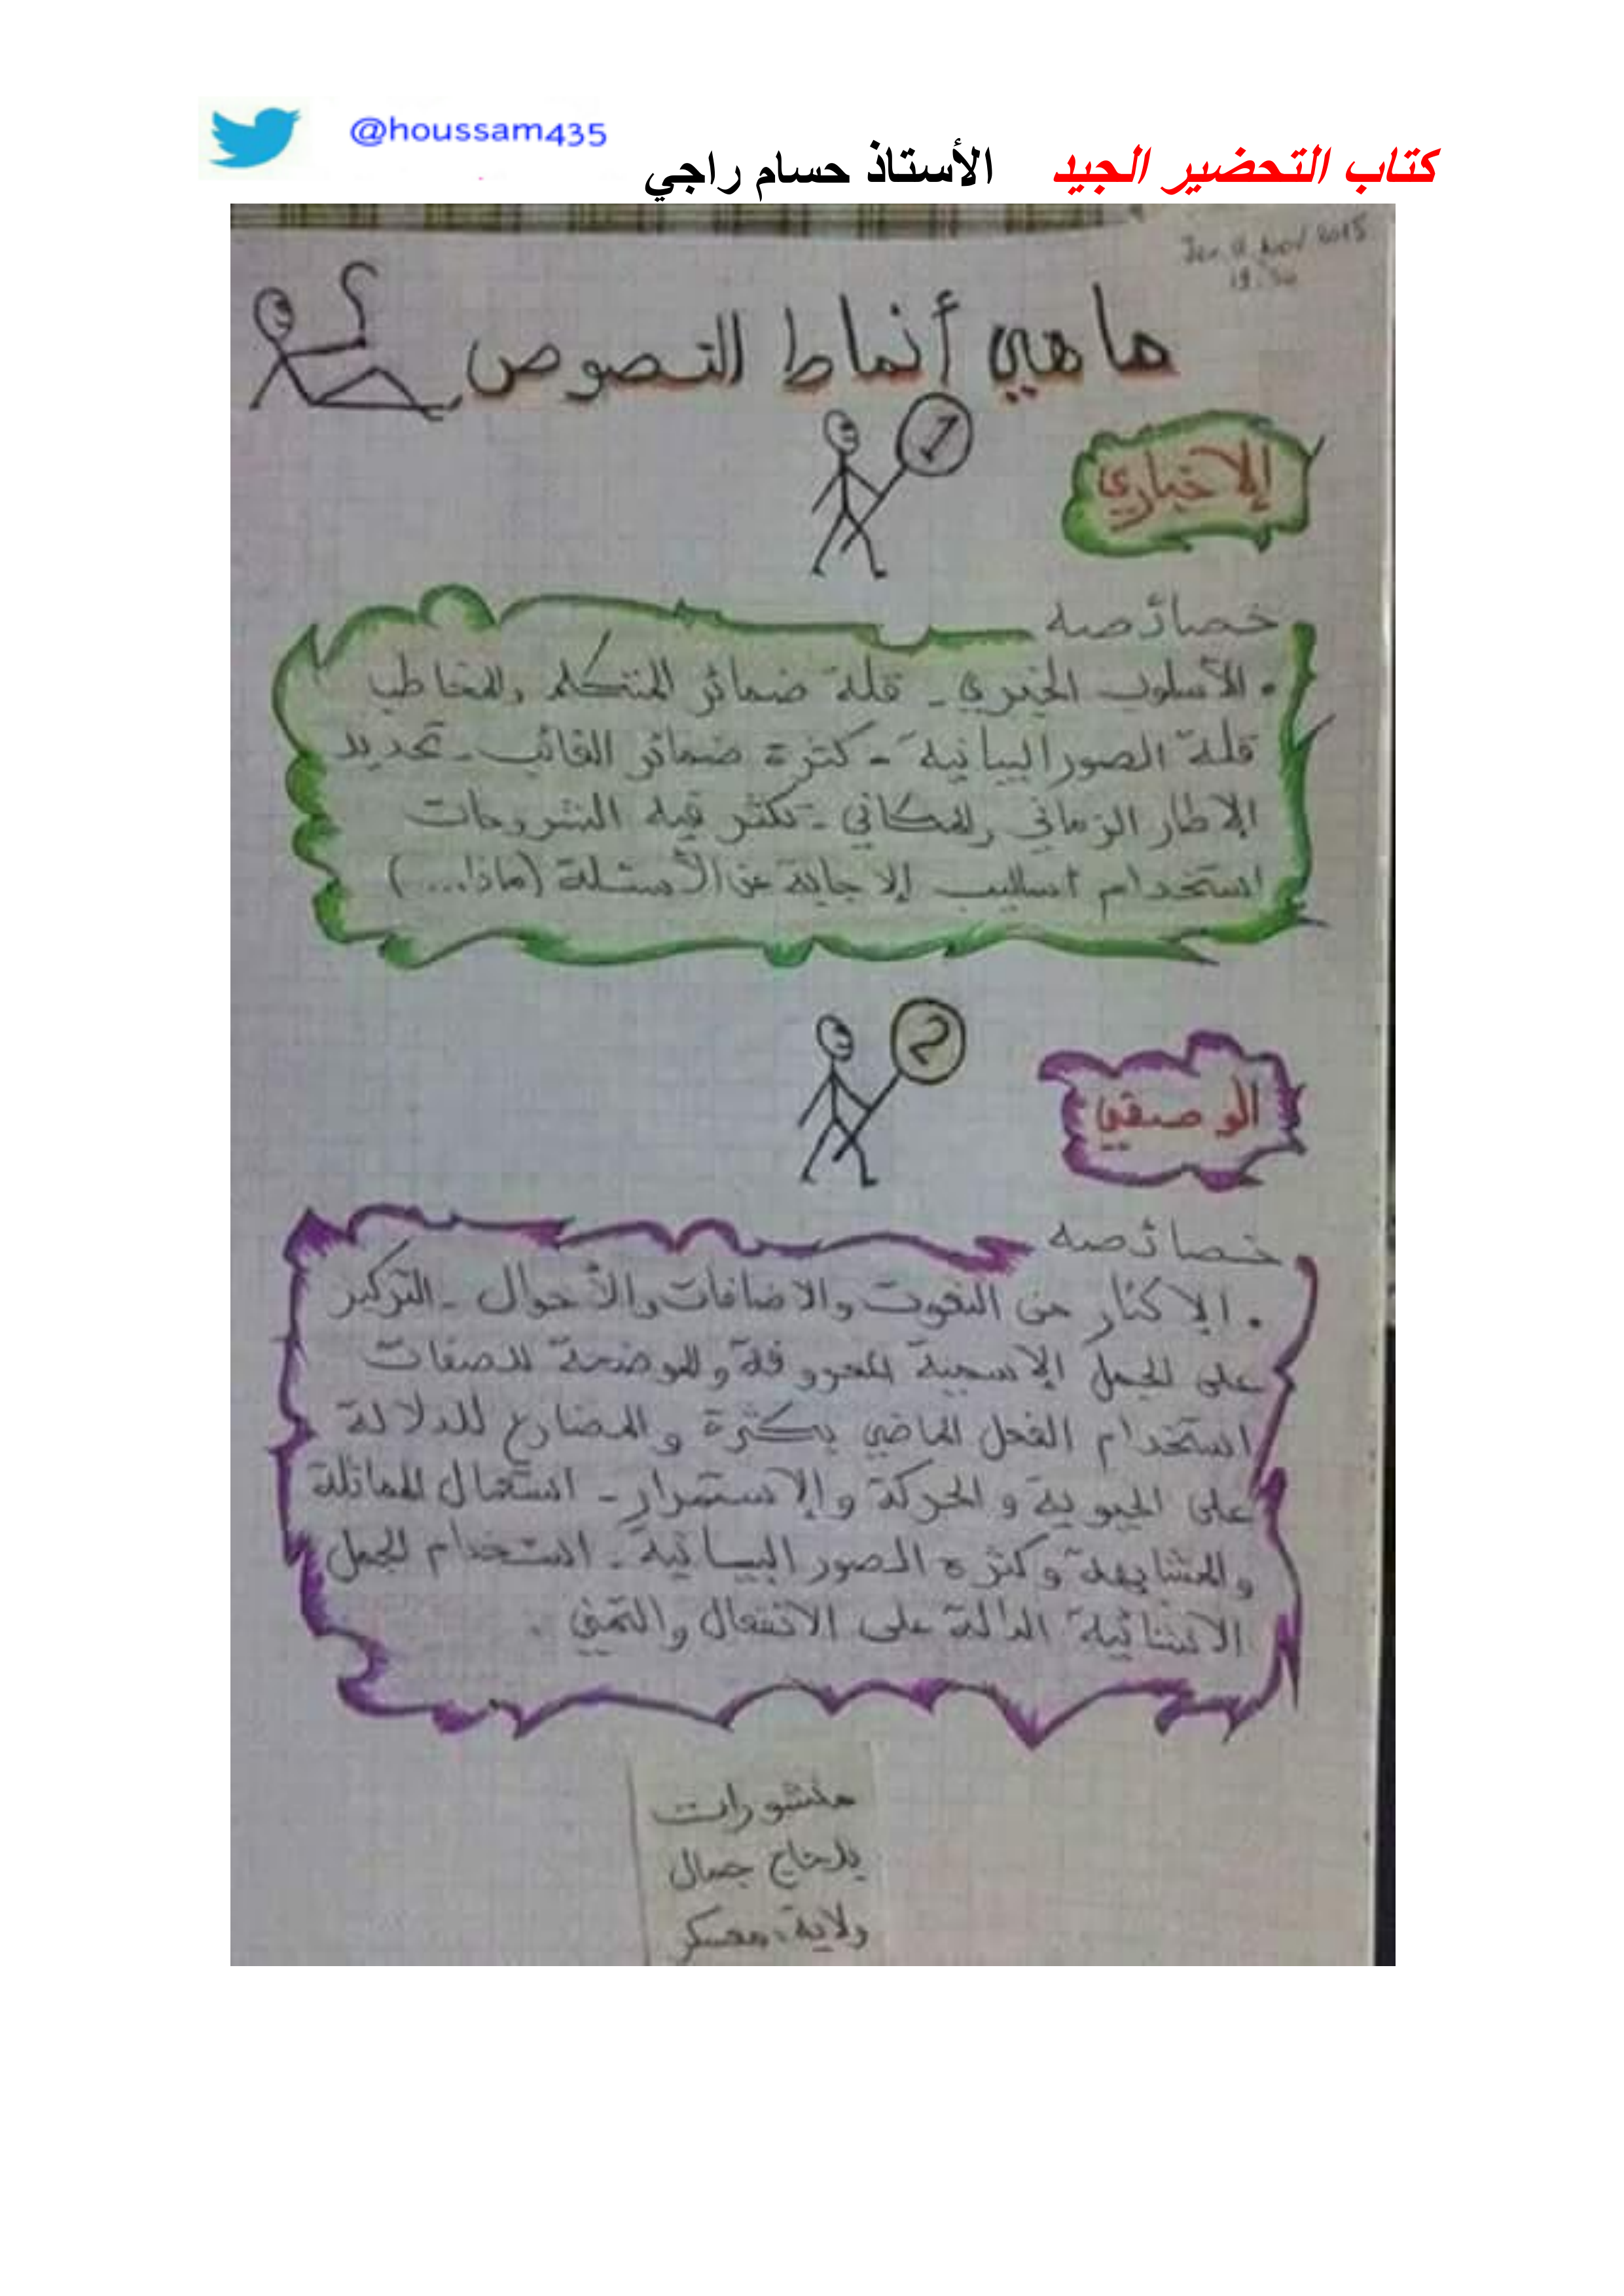 @houssam435
كتاب التحضير الجيد الأستاذ حسام راجي
2015
ما هي أنماط النصوص ؟
1
الإخباري
خصائصه
• الأسلوب الخبري - قلة ضمائر المتكلم والمخاطب
قلة الصور البيانية - كثرة ضمائر الغائب - تحديد
الإطار الزماني والمكاني - تكثر فيه الشروحات
استخدام أساليب الإجابة عن الأسئلة (ماذا....)
2
الوصفي
خصائصه
• الإكثار من النعوت والاضافات والأحوال - التركيز
على الجمل الإسمية المعروفة والموضحة للصفات
استخدام الفعل الماضي بكثرة والمضارع للدلالة
على الحيوية والحركة والإستمرار - استعمال المماثلة
والمشابهة وكثرة الصور البيانية - استخدام الجمل
الانشائية الدالة على الانفعال والتمني .
منشورات
بلحاج جمال
ولاية: معسكر